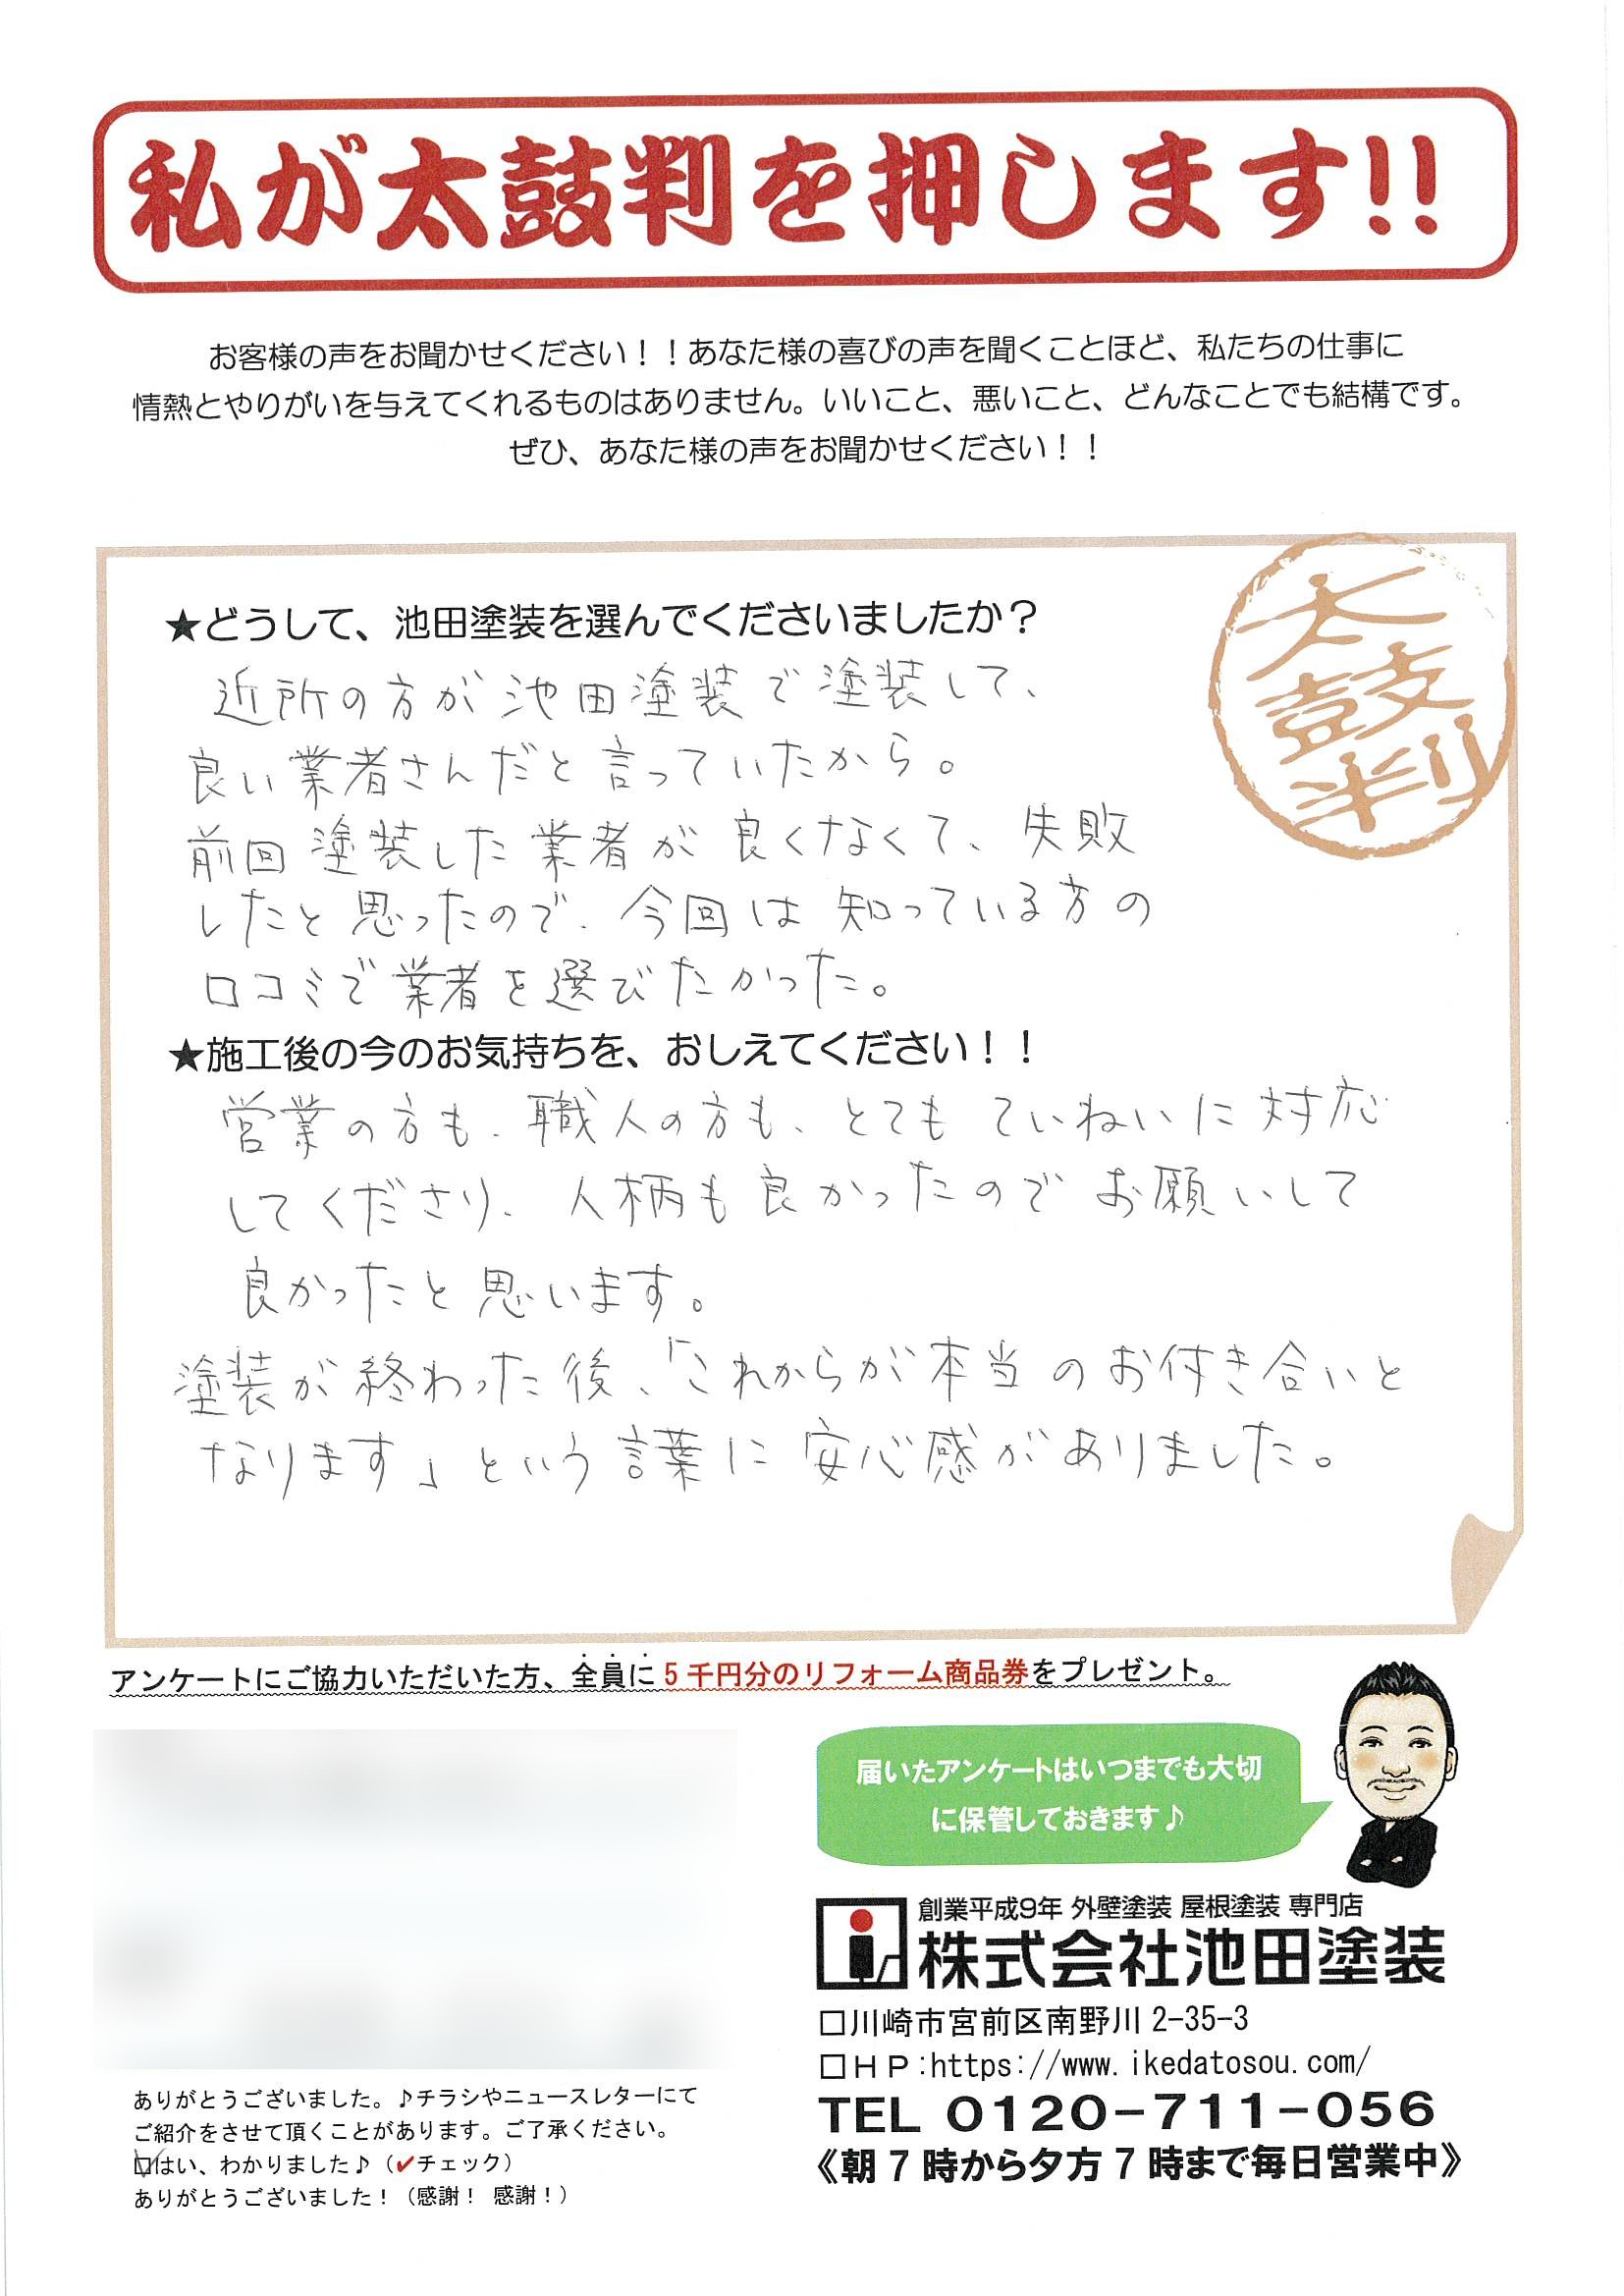 私が太鼓判を押します!!
お客様の声をお聞かせください！！あなた様の喜びの声を聞くことほど、私たちの仕事に
情熱とやりがいを与えてくれるものはありません。いいこと、悪いこと、どんなことでも結構です。
ぜひ、あなた様の声をお聞かせください！！
太鼓判
★どうして、池田塗装を選んでくださいましたか？
近所の方が池田塗装で塗装して、
良い業者さんだと言っていたから。
前回塗装した業者が良くなくて、失敗
したと思ったので、今回は知っている方の
口コミで業者を選びたかった。
★施工後の今のお気持ちを、おしえてください！！
営業の方も、職人の方も、とてもていねいに対応
してくださり、人柄も良かったのでお願いして
良かったと思います。
塗装が終わった後、「これからが本当のお付き合いと
なります」という言葉に安心感がありました。
アンケートにご協力いただいた方、全員に５千円分のリフォーム商品券をプレゼント。
届いたアンケートはいつまでも大切
に保管しておきます♪
創業平成9年 外壁塗装 屋根塗装 専門店
株式会社池田塗装
□川崎市宮前区南野川 2-35-3
□ＨＰ:https://www.ikedatosou.com/
TEL 0120-711-056
《朝７時から夕方７時まで毎日営業中》
ありがとうございました。♪チラシやニュースレターにて
ご紹介をさせて頂くことがあります。ご了承ください。
☑はい、わかりました♪（✔チェック）
ありがとうございました！（感謝！ 感謝！）